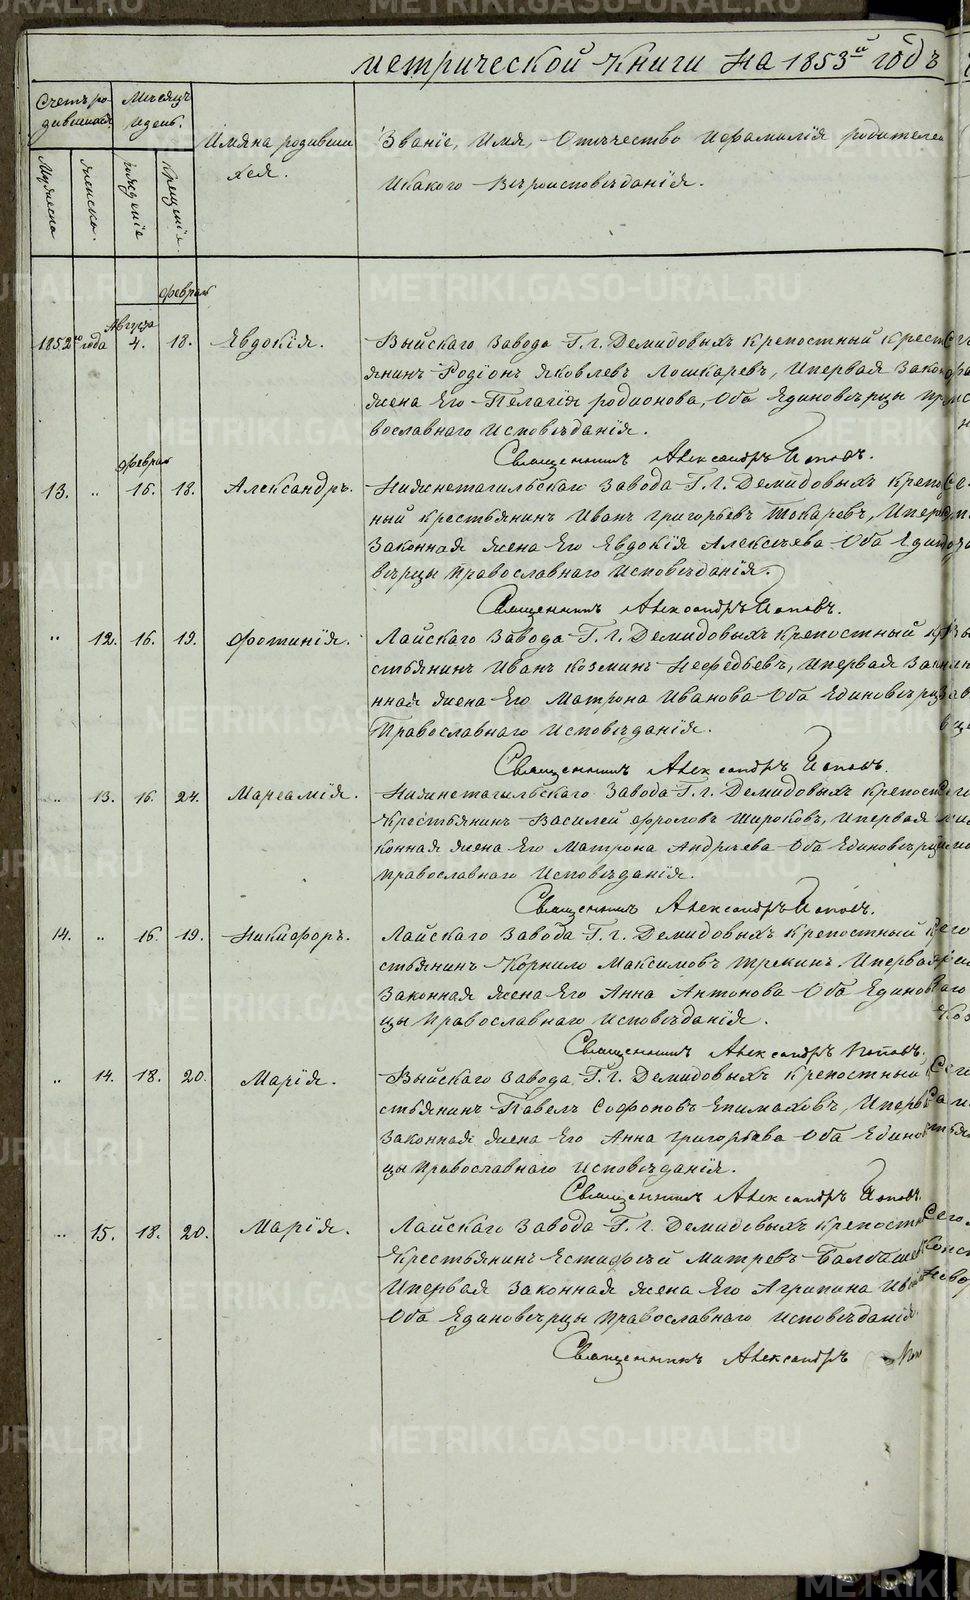 метрической Книги на 1853й годъ
Счетъ ро-
дившихся.
Месяцъ
и день.
Имяна родивши
хся.
Званіе, Имя, Отечество и фамилія родителей
и какого Вероисповеданія.
Мужеска
Женска.
рождение
крещения
феврал
Августа
1852го года 4. 18. Евдокія.
Выйскаго Завода Г. г. Демидовыхъ крепостный крест
янинъ Родіонъ Яковлевъ Лошкаревъ, И первая Закон
жена Его Пелагія родионова, Оба Единоверцы пр
вославнаго Исповеданія.
Священникъ Александръ Поповъ.
февраля
13. " 15. 18. Александръ.
Нижнетагильскаго Завода Г. г. Демидовыхъ крепос
ный крестьянинъ Иванъ григорьевъ Токаревъ, И перв
Законная жена Его Евдокія Алексеева Оба Един
верцы православнаго Исповеданія.
Священникъ Александръ Поповъ.
" 12. 16. 19. Фотинія.
Лайскаго Завода Г. г. Демидовыхъ крепостный кр
стьянинъ Иванъ козминъ Нефедьевъ, И первая Зако
нная жена Его Матрона Иванова Оба Единоверцы
Православнаго Исповеданія.
Священникъ Александръ Поповъ.
" 13. 16. 24. Мареамія.
Нижнетагильскаго Завода Г. г. Демидовыхъ крепост
Крестьянинъ Василей фроловъ Широковъ, И первая
конная жена Его Матрона Андреева Оба Единоверцы
православнаго Исповеданія.
Священникъ Александръ Поповъ.
14. " 16. 19. Никифоръ.
Лайскаго Завода Г. г. Демидовыхъ крепостный
стьянинъ Корнило Максимовъ Трекинъ. И первая
Законная жена Его Анна Антонова Оба Единов
цы православнаго Исповеданія.
Священникъ Александръ Поповъ.
" 14. 18. 20. Марія.
Выйскаго Завода Г. г. Демидовыхъ крепостный
стьянинъ Павелъ Софоновъ Епимаховъ, И перв
Законная жена Его Анна григорьева Оба Единов
цы православнаго Исповеданія.
Священникъ Александръ Поповъ.
" 15. 18. 20. Марія.
Лайскаго Завода Г. г. Демидовыхъ крепостн
Крестьянинъ Естифей Митревъ Балбаше
И первая Законная жена Его Агрипина
Оба Единоверцы православнаго исповеданія
Священникъ Александръ Поп
METRIKI.GASO-URAL.RU